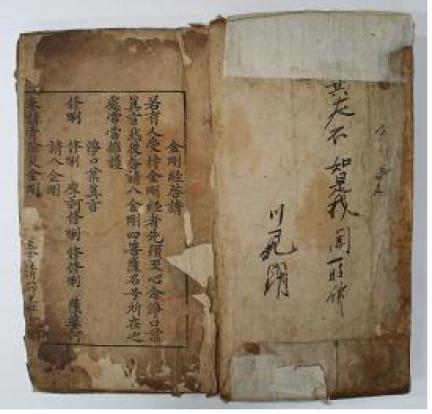 如是我聞一時佛
金剛經啓請
若有人受持金剛經者先須至心念淨口業
眞言然後啓請八金剛四菩薩名号所在之
處常當擁護
淨口業眞言
脩唎 脩唎 摩訶脩唎 脩脩唎 薩婆訶
請八金剛
奉請靑除灾金剛